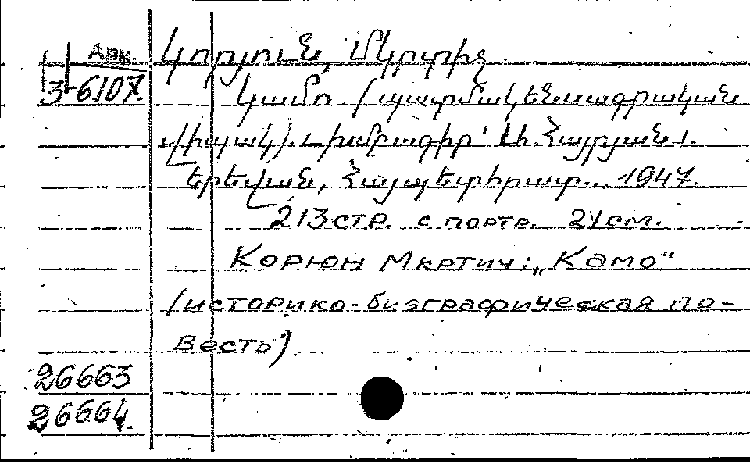 Арм.
Կորյուն, Մկրտիչ
3-6107. Կամո (պատմակենսագրական
վիպակ). Խմբագիր՝ Հայրյան.
Երեվան, Հայպետհրատ., 1947.
213 стр. с портр. 21 см.
Корюн Мкртич: „Камо“
(историко-биографическая по-
весть)
26663
26664.